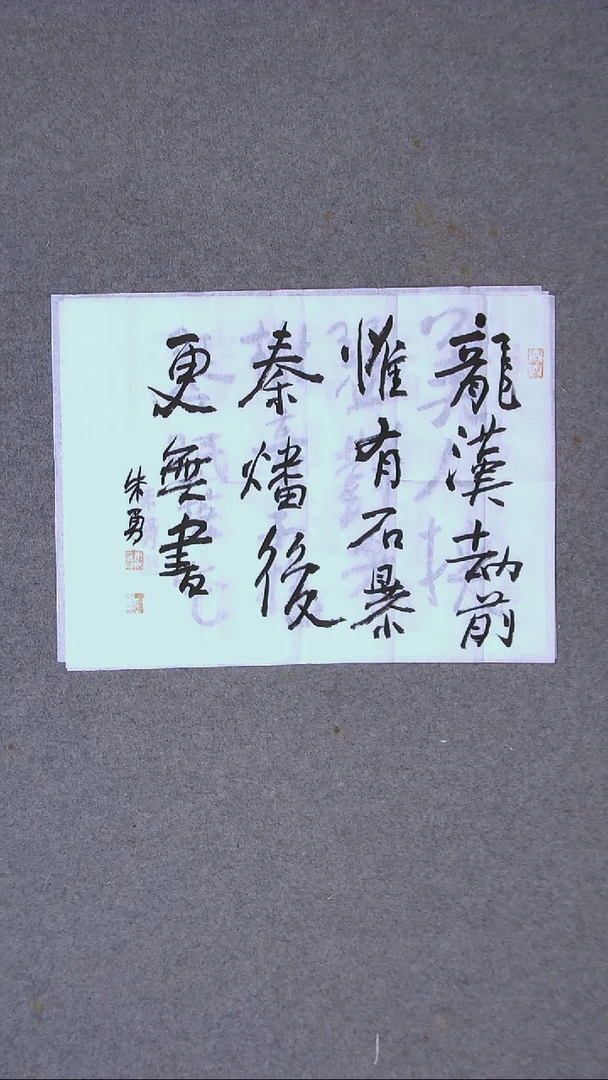 龍漢劫前
惟有石暴
秦燔後
更無書
朱勇